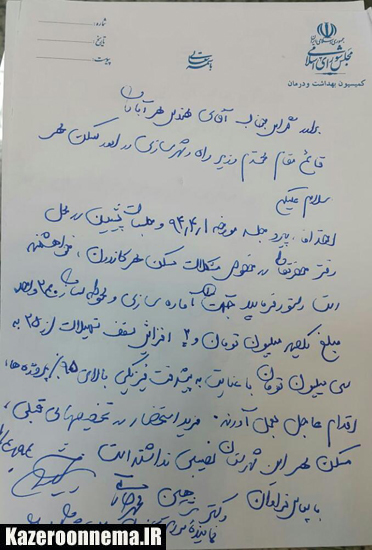 جمهوری اسلامی ایران
مجلس شورای اسلامی
کمیسیون بهداشت و درمان
باسمه تعالی
شماره:
تاریخ
پیوست
برادر گرامی جناب آقای مهندس مهرآبادی
قائم مقام محترم وزیر راه و شهرسازی در امور مسکن مهر
سلام علیکم
احتراما، پیرو جلسه مورخه ۹۴,۴,۱ و جلسات پیشین در محل
دفتر حضرتعالی در خصوص مشکلات مسکن مهر کازرون، خواهشمند
است دستور فرمایید جهت آماده سازی و محوطه سازی ۳۰۰۰ واحد
مبلغ میلیون تومان و افزایش سقف تسهیلات از ۲۵ به
سی میلیون تومان با عنایت به پیشرفت فیزیکی بالای ۹۵٪ پروژه ها،
اقدام عاجل بعمل آورند. مزید استحضار در تخصیصهای قبلی،
مسکن مهر این شهرستان نصیبی نداشته است
با سپاس فراوان
دکتر
نماینده مردم
KazeroonNema.IR